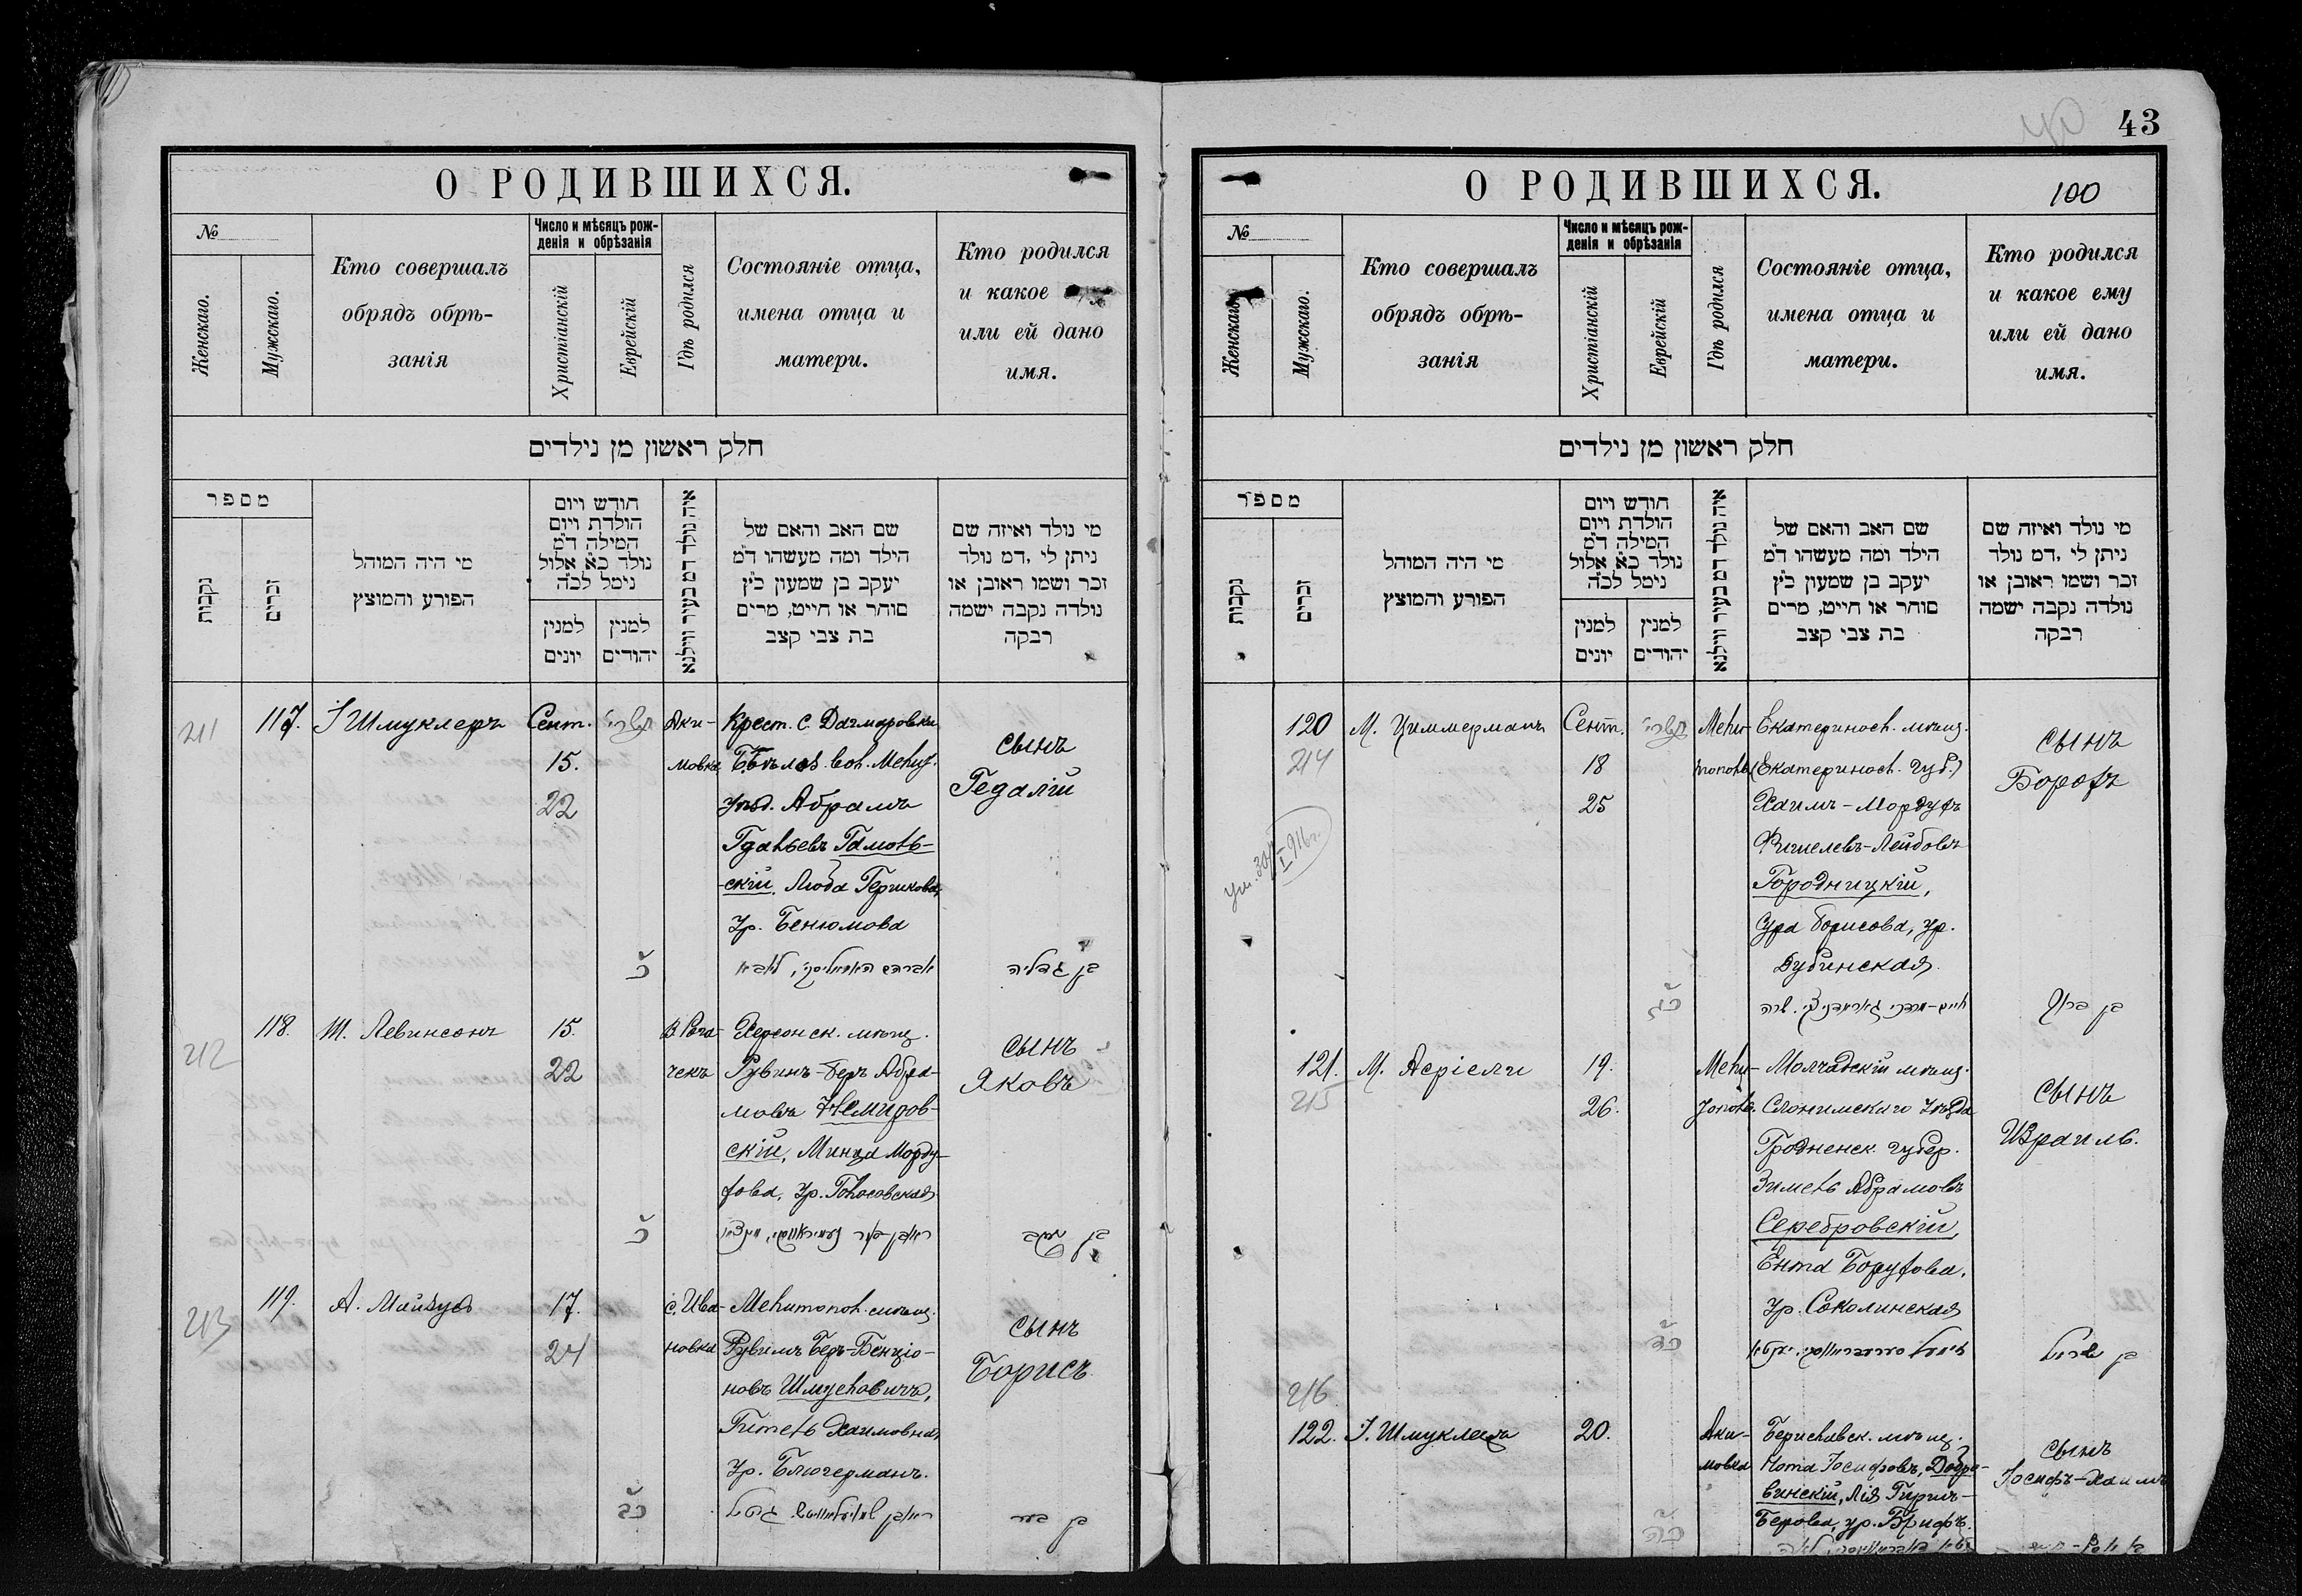 О РОДИВШИХСЯ.
№
Женскаго.
Мужскаго.
Кто совершалъ
обрядъ обрѣ-
занія
Число и мѣсяцъ рож-
денія и обрѣзанія
Христіанскій
Еврейскій
Гдѣ родился
Состояніе отца,
имена отца и
матери.
Кто родился
и какое
или ей дано
имя.
חלק ראשון מן נילדים
מספר
נקבות
זכרים
מי היה המוהל
הפורע והמוצץ
חודש ויום
הולדת ויום
המילה ד״מ
נולד כ״א אלול
נימל לכ״ה
למנין
יונים
למנין
יהודים
איה נולד דמ בעיר ווילנא
שם האב והאם של
הילד ומה מעשהו ד״מ
יעקב בן שמעון כ״ץ
סוחר או חייט, מרים
בת צבי קצב
מי נולד ואיזה שם
ניתן לי, דמ נולד
זכר ושמו ראובן או
נולדה נקבה ישמה
רבקה
211
117. І Шмуклеръ
Сент.
15.
22
תשרי
Аки-
мовка
Крест. с. Дагмаровки
Уѣзд. Абрамъ
скій, Люба Гершкова,
Ур. Бенюмова
сынъ
Гедалій
כ
בן גדליה
212
118. Ш. Левинсонъ
15.
22
В Рога-
чекъ
Херсонск. мѣщ.
Рувинъ-Беръ Абра-
мовъ Немиров-
скій, Минца Морду-
сынъ
Яковъ
כ
בן יעקב
213
119. А. Майзусъ
17.
24
с. Ива-
новка
Мелитопол. мѣщ.
Рувимъ Беръ-Бенціо-
новъ Шмулевичъ,
Гитель Хаимовна,
Ур. Блюгерманъ.
сынъ
Борисъ
כב
בן בער
43
О РОДИВШИХСЯ.
100
№
Женскаго.
Мужскаго.
Кто совершалъ
обрядъ обрѣ-
занія
Число и мѣсяцъ рож-
денія и обрѣзанія
Христіанскій
Еврейскій
Гдѣ родился
Состояніе отца,
имена отца и
матери.
Кто родился
и какое ему
или ей дано
имя.
חלק ראשון מן נילדים
מספר
נקבות
זכרים
מי היה המוהל
הפורע והמוצץ
חודש ויום
הולדת ויום
המילה ד״מ
נולד כ״א אלול
נימל לכ״ה
למנין
יונים
למנין
יהודים
איה נולד דמ בעיר ווילנא
שם האב והאם של
הילד ומה מעשהו ד״מ
יעקב בן שמעון כ״ץ
סוחר או חייט, מרים
בת צבי קצב
מי נולד ואיזה שם
ניתן לי, דמ נולד
זכר ושמו ראובן או
נולדה נקבה ישמה
רבקה
120
214
М. Циммерманъ
Сент.
18
25
תשרי
Мели-
тополь
Екатериносл. мѣщ.
(Екатериносл. губ.)
Хаимъ-Мордухъ
Фишелевъ-Лейбовъ
Городницкій,
Сура Борисова, ур.
Дубинская.
сынъ
Борохъ
כג
בן ברוך
121.
215
М. Асріели
19.
26.
Мели-
тополь.
Молчадскій мѣщ.
Слонимскаго Уѣзда
Гродненск. губер.
Зимель Абрамовъ
Серебровскій,
Ента Борухова,
Ур. Соколинская
сынъ
Израиль.
כד
בן ישראל
216
122. І. Шмуклеръ
20.
Аки-
мовка
Бериславск. мѣщ.
Нота Іосифовъ, Добро-
винскій, Лія Гирш-
Берова, ур. Брифъ.
сынъ
Іосифъ-Хаимъ
כה